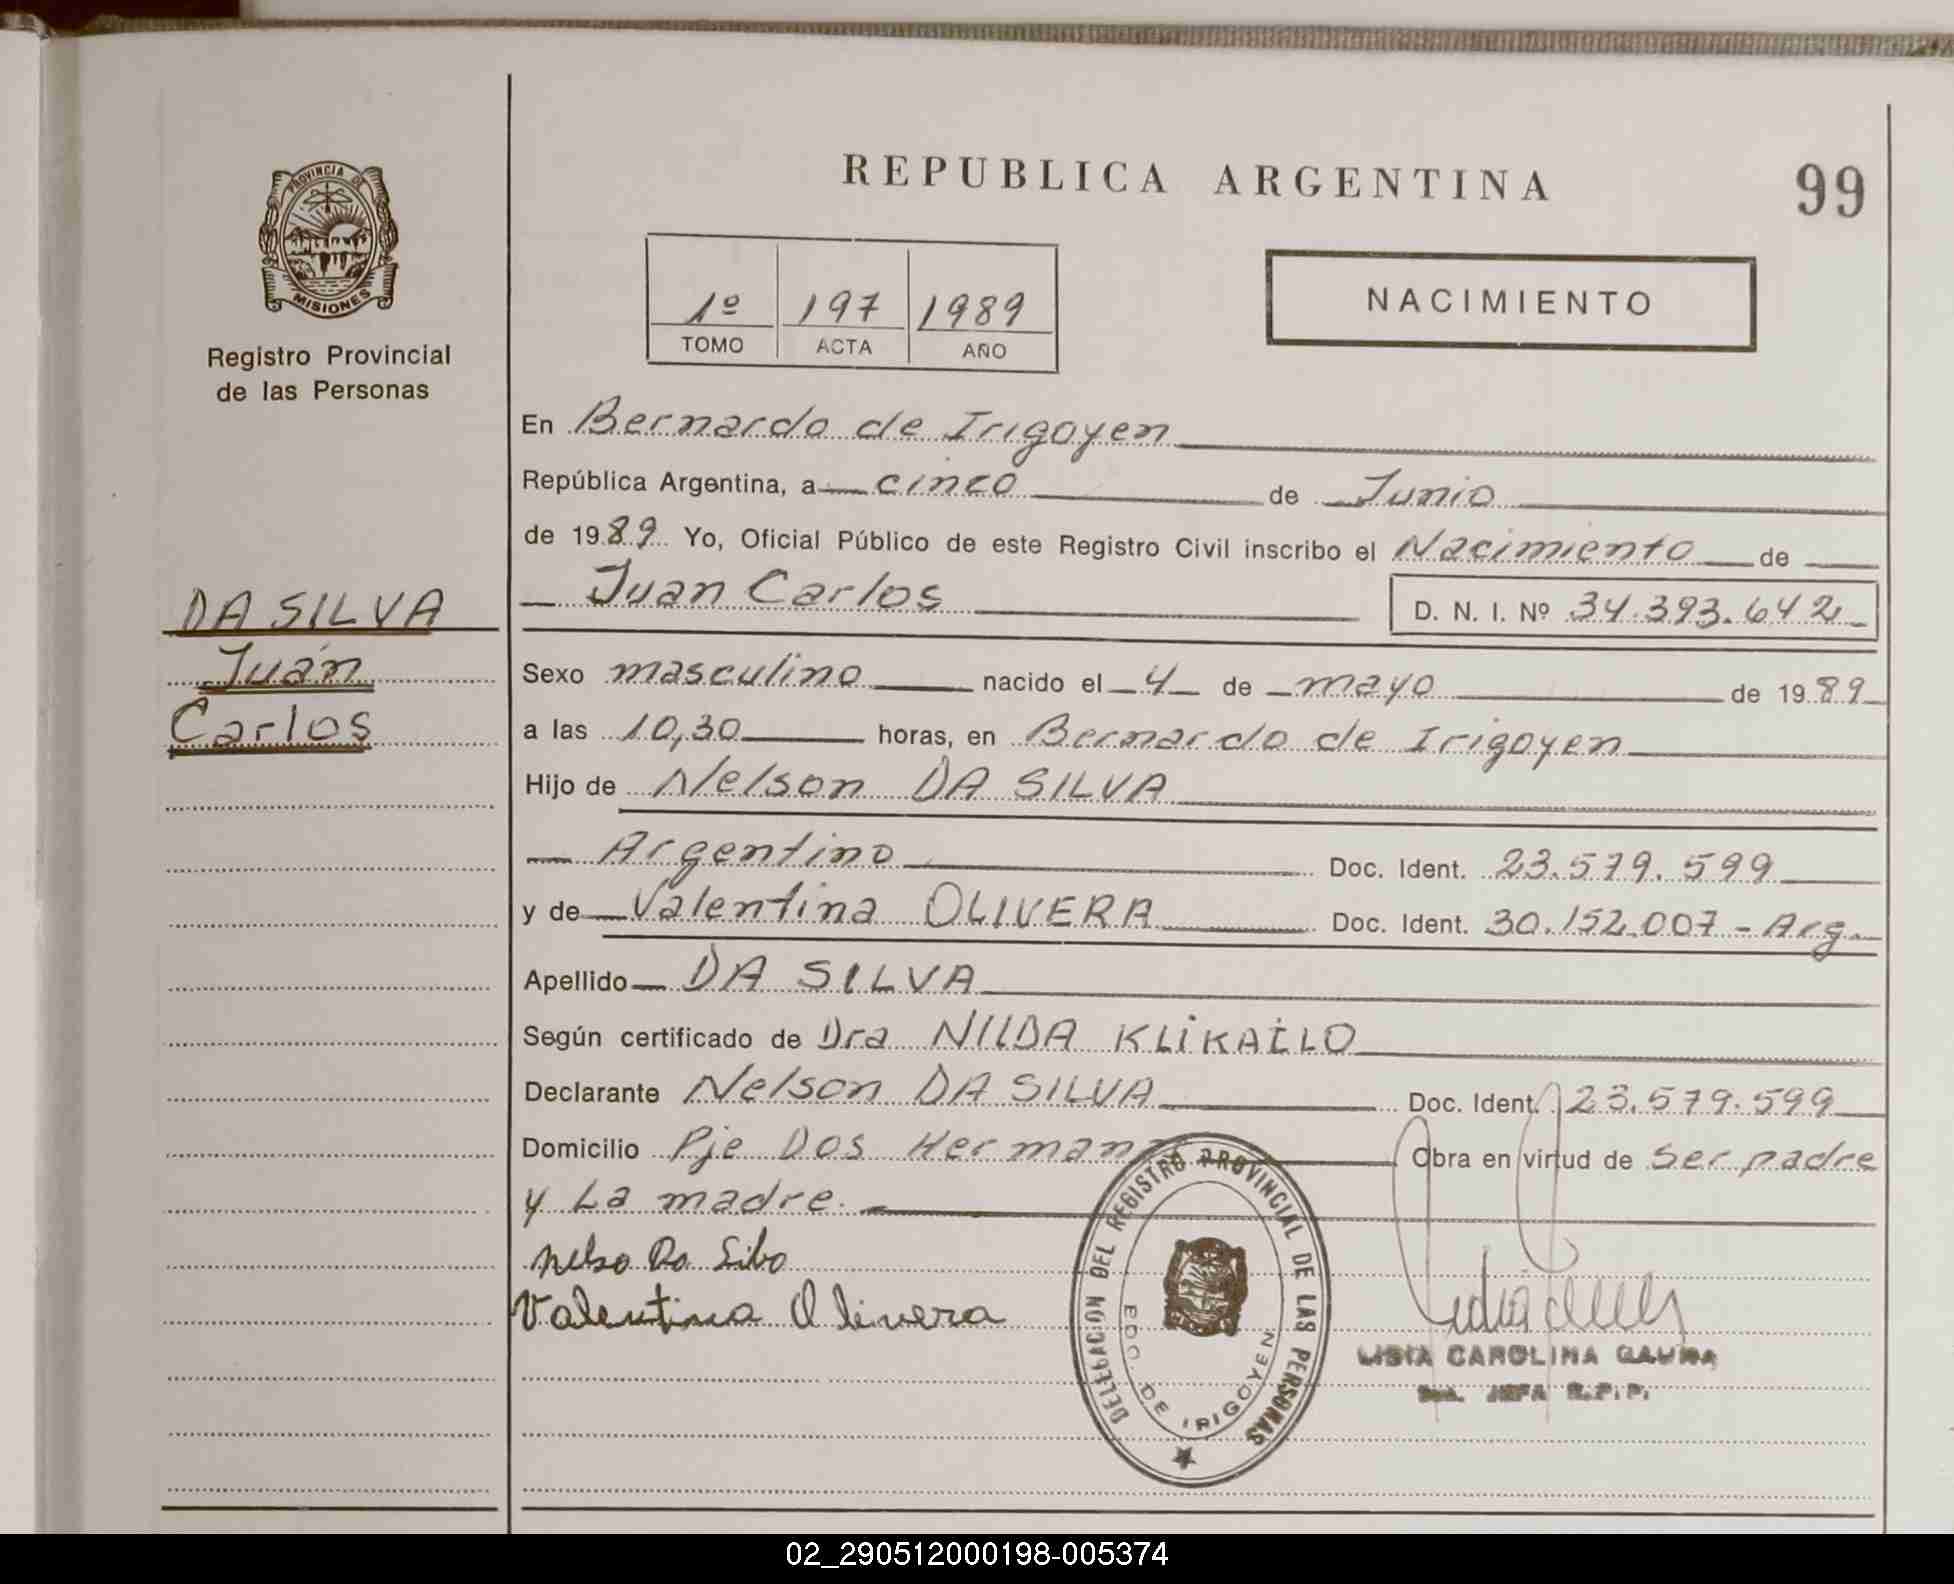 PROVINCIA DE
MISIONES
Registro Provincial
de las Personas
DA SILVA
Juan
Carlos
REPUBLICA ARGENTINA
99
1º 197 1989
TOMO ACTA AÑO
NACIMIENTO
En Bernardo de Irigoyen
República Argentina, a cinco de Junio
de 1989 Yo, Oficial Público de este Registro Civil inscribo el Nacimiento de
Juan Carlos D. N. I. Nº 34.393.642
Sexo masculino nacido el 4 de mayo de 1989
a las 10,30 horas, en Bernardo de Irigoyen
Hijo de Nelson DA SILVA
Argentino Doc. Ident. 23.579.599
y de Valentina OLIVERA Doc. Ident. 30.152.007 - Arg.
Apellido DA SILVA
Según certificado de Dra NILDA KLIKAILO
Declarante Nelson DA SILVA Doc. Ident. 23.579.599
Domicilio Pje Dos Hermanas Obra en virtud de ser padre
y La madre.
Nelso Da Silva
Valentina Olivera
DELEGACION DEL REGISTRO PROVINCIAL DE LAS PERSONAS
BDO. DE IRIGOYEN
CAROLINA
JEFA R.P.P.
02_290512000198-005374